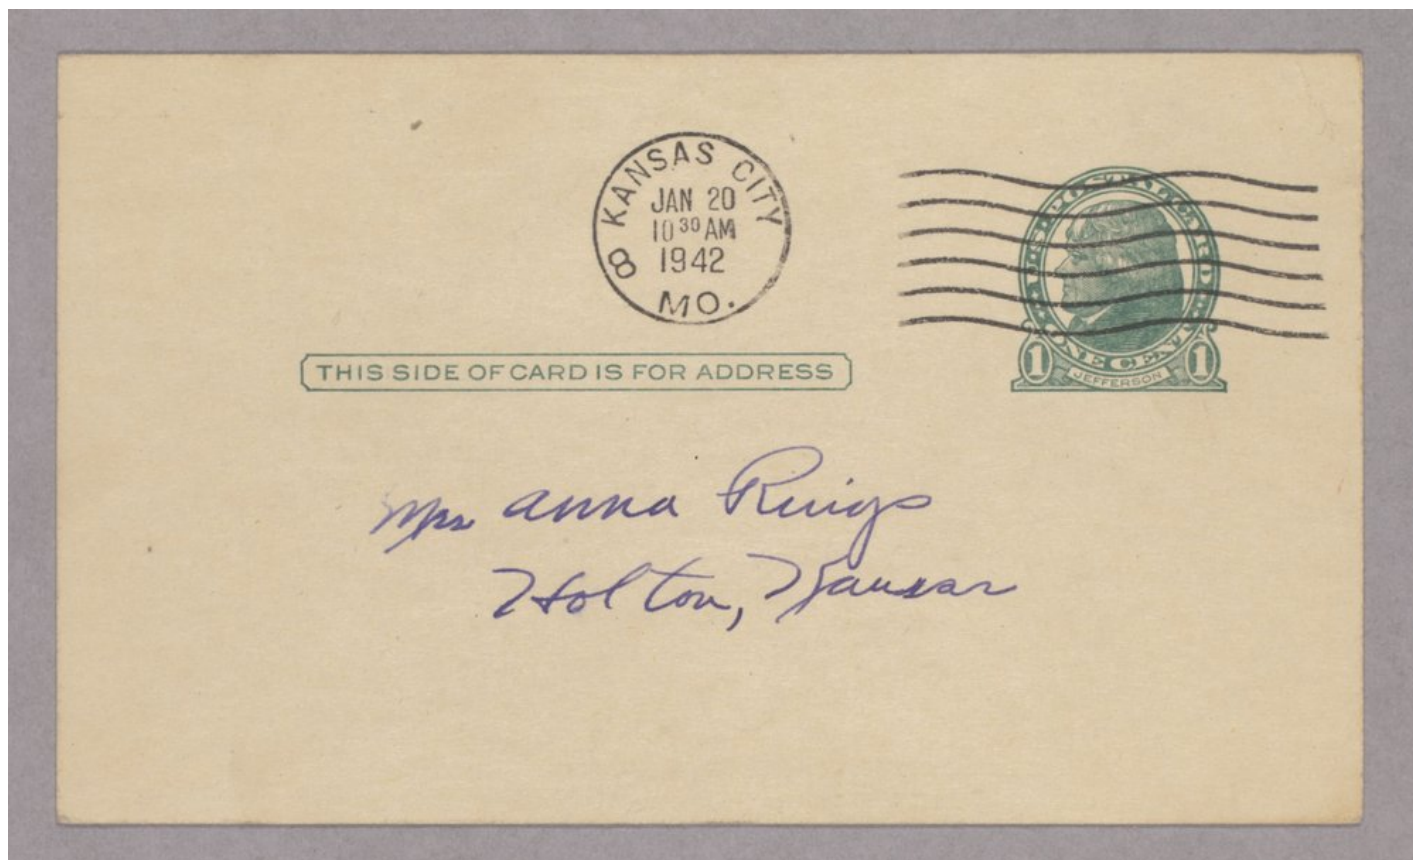 KANSAS CITY
JAN 20
10 30 AM
1942
8
MO.
U.S. POSTAL CARD
ONE CENT
1 JEFFERSON 1
THIS SIDE OF CARD IS FOR ADDRESS
Mrs Anna
Holton, Kansas